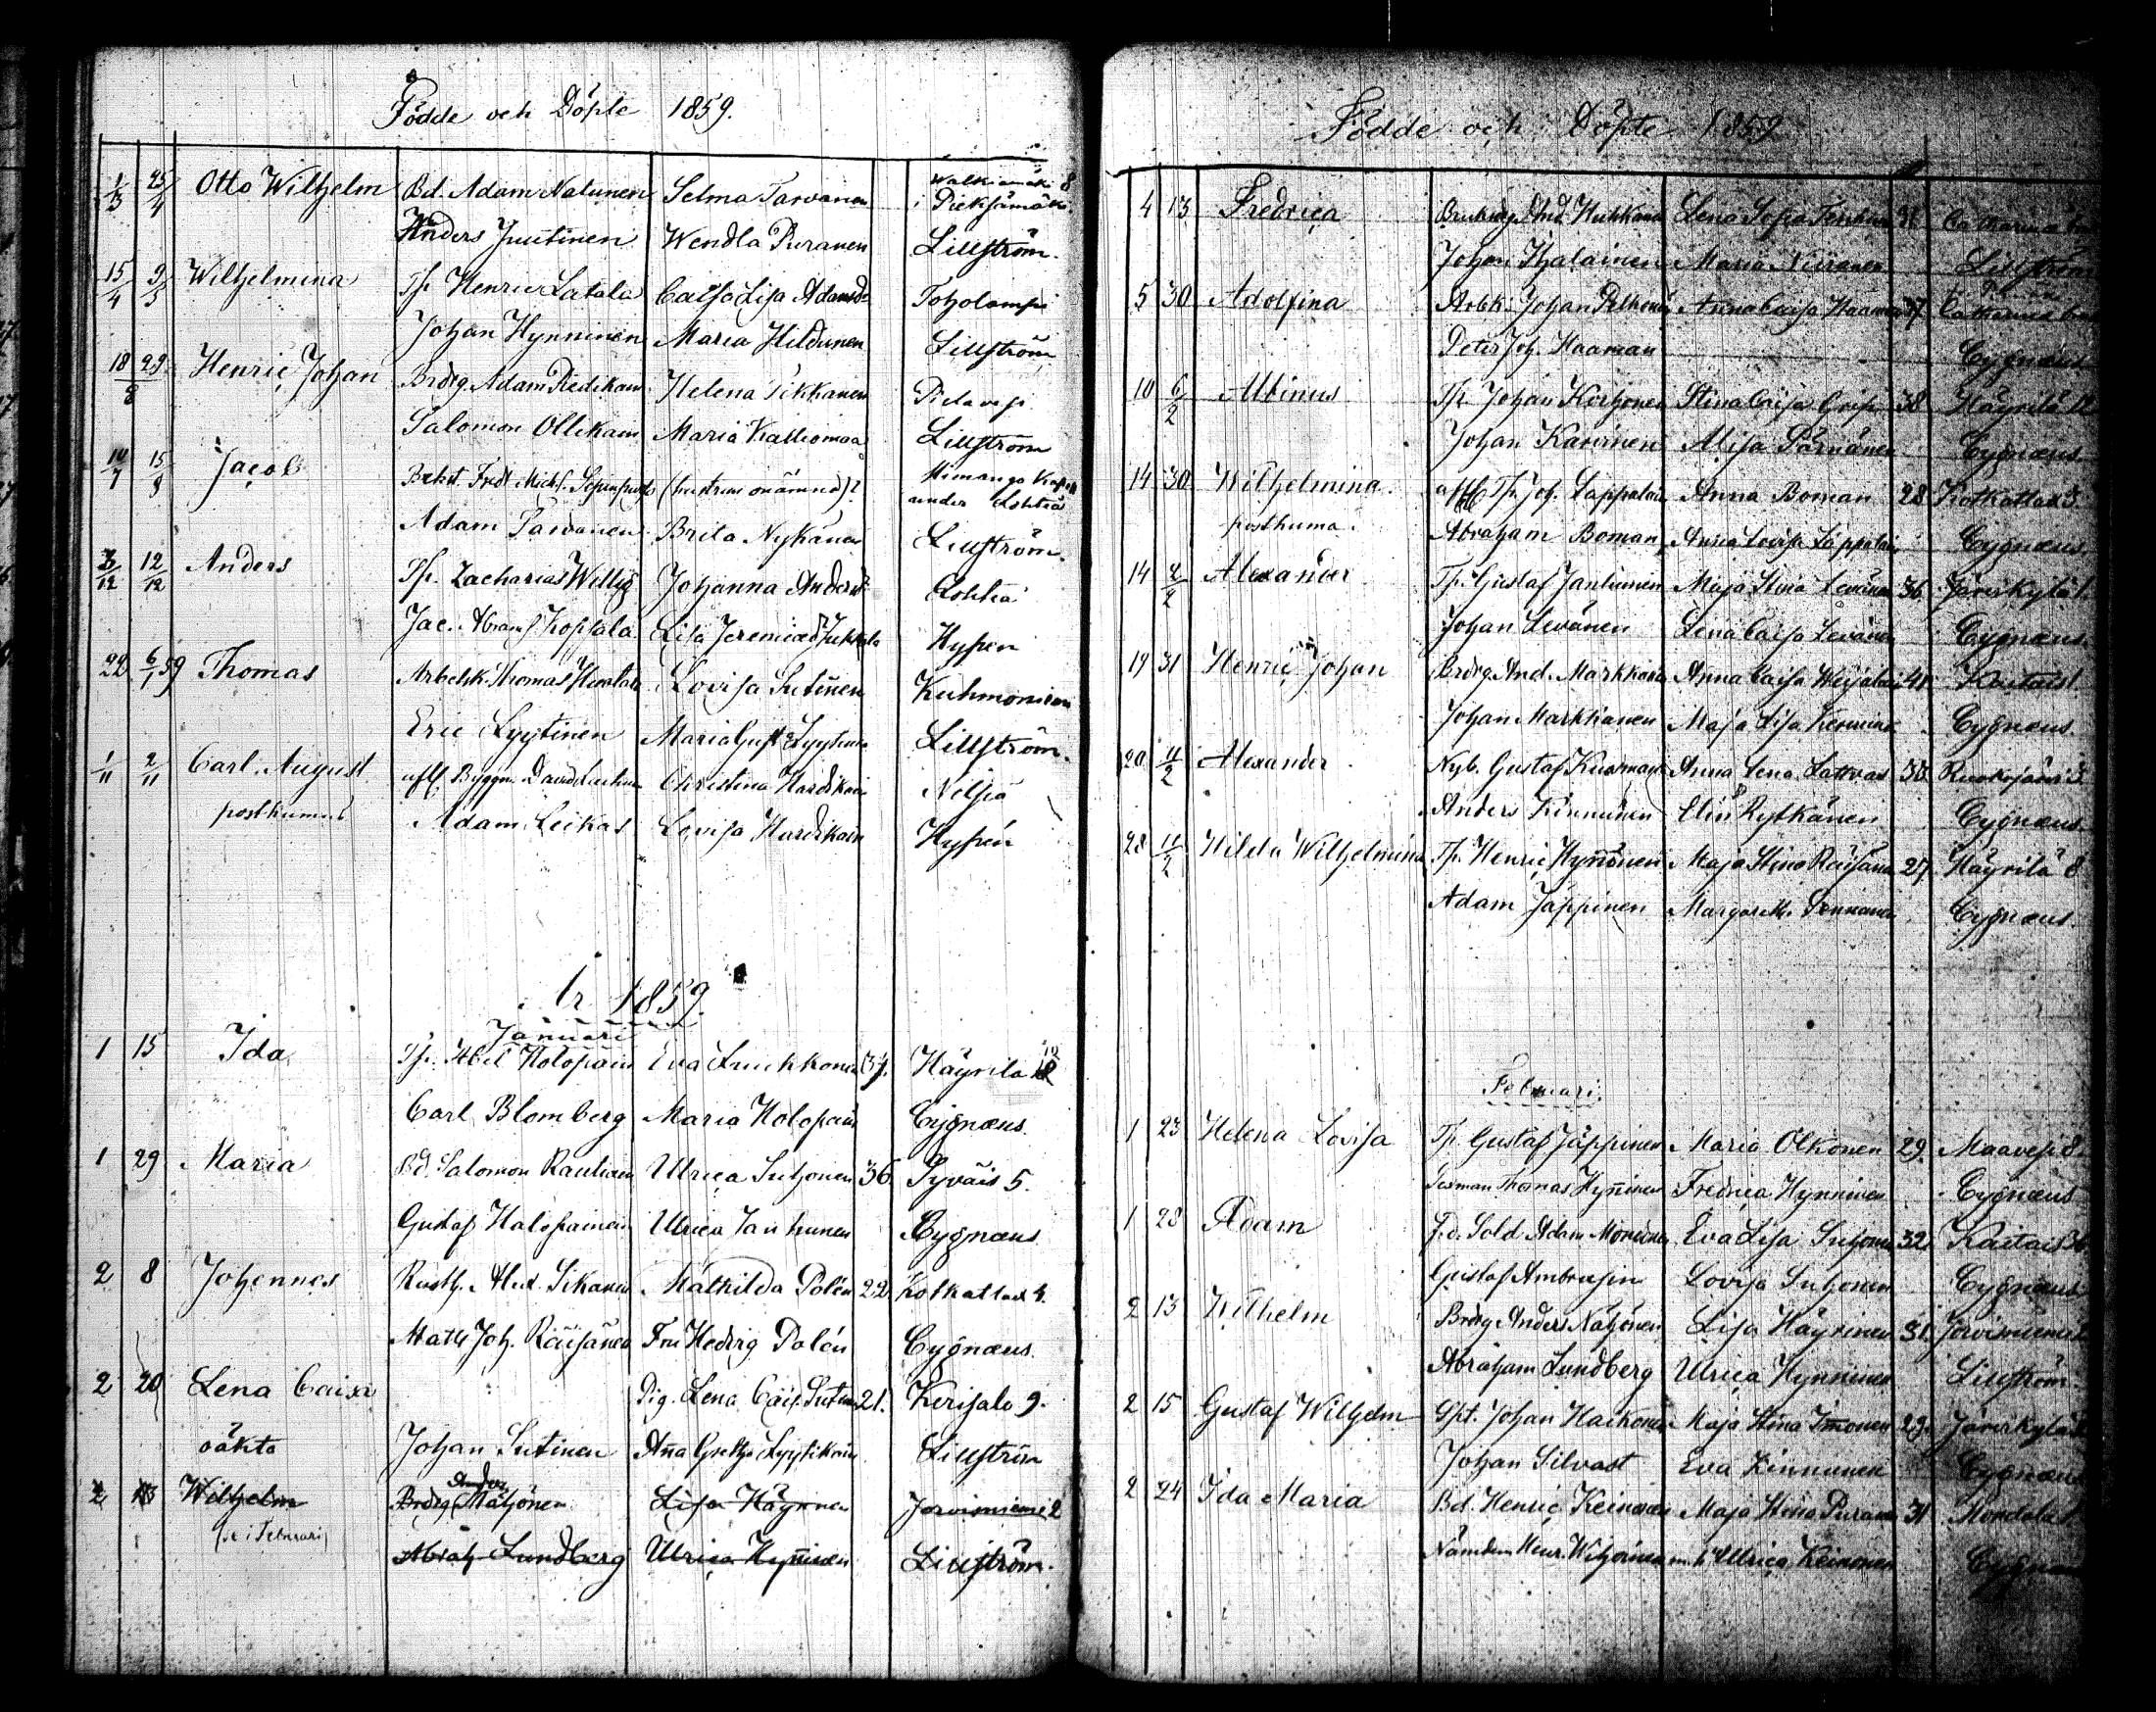 Födde och Döpte 1859.
1/3 25/4 Otto Wilhelm Bd. Adam Natunen Selma Tarvanen i Pieksämäki 8
Anders Juutinen Wendla Puranen Lillström.
15/4 9/5 Wilhelmina Tp. Henric Latala Caisa Lisa Adamsd. Toholampi
Johan Hynninen Maria Hildunen Lillström
18 29/8 Henric Johan Brdrg. Adam Piedikäin Helena Tikkanen Pielavesi
Salomon Ollikain Maria Kalliomaa Lillström
14/7 15/8 Jacob Fredr. Mich. (hustrun onämnd)? Himango Kapell under Lohteå
Adam Tarvanen Brita Nykänen Lillström.
3/12 12/12 Anders Tp. Zacharias Willig Johanna Andersd. Lohteå
Jac. Abramss. Koppala Lisa Jeremiaed. Hypén
22 6/1 59 Thomas Arbetsk. Thomas Lovisa Sutinen Kuhmoniemi
Eric Lyytinen Maria Gust. Lyytinen Lillström.
1/11 2/11 Carl August afl. Byggm. David Christina Hardikain Nilsiä
posthumus Adam Leikas Lovisa Hardikain Hypén
År 1859.
Januari
1 15 Ida Tp. Abel Holopain Eva Luukkonen 37. Häyrilä 12
Carl Blomberg Maria Holopain Cygnæus.
1 29 Maria Bd. Salomon Rautiain Ulrica Suhonen 36 Syväis 5.
Gustaf Halopainen Ulrica Janhunen Cygnæus
2 8 Johannes Rusth. Alex. Sikanen Mathilda Polén 22. Kotkatlax 4.
Matts Joh. Räisänen Fru Hedvig Polén Cygnæus.
2 20 Lena Caisa Pig. Lena Cais. Sutinen 21. Kerisalo 9.
oäkta Johan Sutinen Anna Gretha Lyytikäin Lillström
2 13 Wilhelm Brdrg. Anders Natjönen Lisa Häyrinen Jorvisniemi 2
(se i Februari)
Abrah. Lundberg Ulrica Hynninen Lillström.
Födde och Döpte 1859
4 13 Fredrica And. Huhkanen Lena Sofia Tenhunen
Johan Ihalainen Maria Niiranen Lillström
5 30 Adolfina Arbk. Johan Pelkonen Anna Caisa Haaman 37.
Peter Joh. Haaman Cygnæus
10 6/2 Albinus Tp. Johan Korhonen Stina Caisa Grip 38 Häyrilä 12
Johan Karvinen A. Lisa Pärnänen Cygnæus.
14 30 Wilhelmina afl. Tp. Joh. Lappalain Anna Boman 28 Kotkatlax 3.
posthuma. Abraham Boman Anna Lovisa Lappalain Cygnæus.
14 2/2 Alexander Tp. Gustaf Janhunen Maja Stina Levänen 36 Järvikylä 1.
Johan Levänen Lena Caisa Levänen Cygnæus.
19 31 Henric Johan Brdrg. And. Markkanen Anna Caisa Weijalain 41 Kaitais 1.
Johan Markkanen Maja Lisa Cygnæus.
20 11/2 Alexander Nyb. Gustaf Kuosmanen Anna Lena Lattvas 30. Ruokojärvi 3
Anders Kinnunen Elin Rytkänen Cygnæus
28 11/2 Hilda Wilhelmina Tp. Henric Hynnönen Maja Stina Räisänen 27. Häyrilä 8
Adam Jäppinen Margareta Cygnæus.
Februari.
1 23 Helena Lovisa Tp. Gustaf Jäppinen Maria Olkonen 29. Maavesi 8.
Sexman Thomas Hynninen Fredrica Hynninen Cygnæus
1 28 Adam F.d. Sold. Adam Moninen Eva Lisa Suhonen 32. Kaitais
Gustaf Ambrusin Lovisa Suhonen Cygnæus
2 13 Wilhelm Brdrg Anders Natjönen Lisa Häyrinen 31. Jorvisniemi 2
Abraham Lundberg Ulrica Hynninen Lillström.
2 15 Gustaf Wilhelm Spt. Johan Haikonen Maja Stina Immonen 23. Järvikylä
Johan Silvast Eva Kinnunen Cygnæus
2 24 Ida Maria Bd. Henric Keinonen Maja Stina Puranen 31
Nämdem. Henr. Ulrica Keinonen Cygnæus